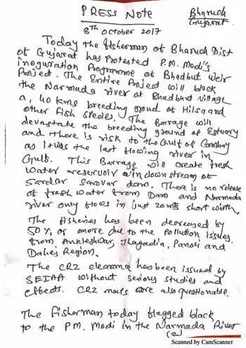 PRESS Note
Bharuch
Gujarat
8th October 2017
Today the fisherman of Bharuch Dist
of Gujarat has protested P.M. Modi's
ineguration Programme of Bhadbut Weir
Project. The Entire Project will block
the Narmada river at Bhadbhut village
a, 40 kms breeding ground of Hilsa and
other Fish Species. The Barrage will
devastate the breeding ground of Estuary
and there is rick to the Gulf of Combay
as it was the last flowing river in
Gulf. This Barrage will create fresh
water reservoir in down stream of
Sardar Sarovar dam. There is no release
of fresh water from Dam and Narmada
river only flows in just short width.
The fisheries has been decreased by
50% or more due to the Pollution issues
from Ankleshwar, Jhagadia, Panoli and
Dahej Region.
The CRZ clearance has been issued by
SEIAA without serious studies and
effects. CRZ maps are also questionable.
The Fisherman today flagged black
to the P.M. Modi in the Narmada River
(2)
Scanned by CamScanner